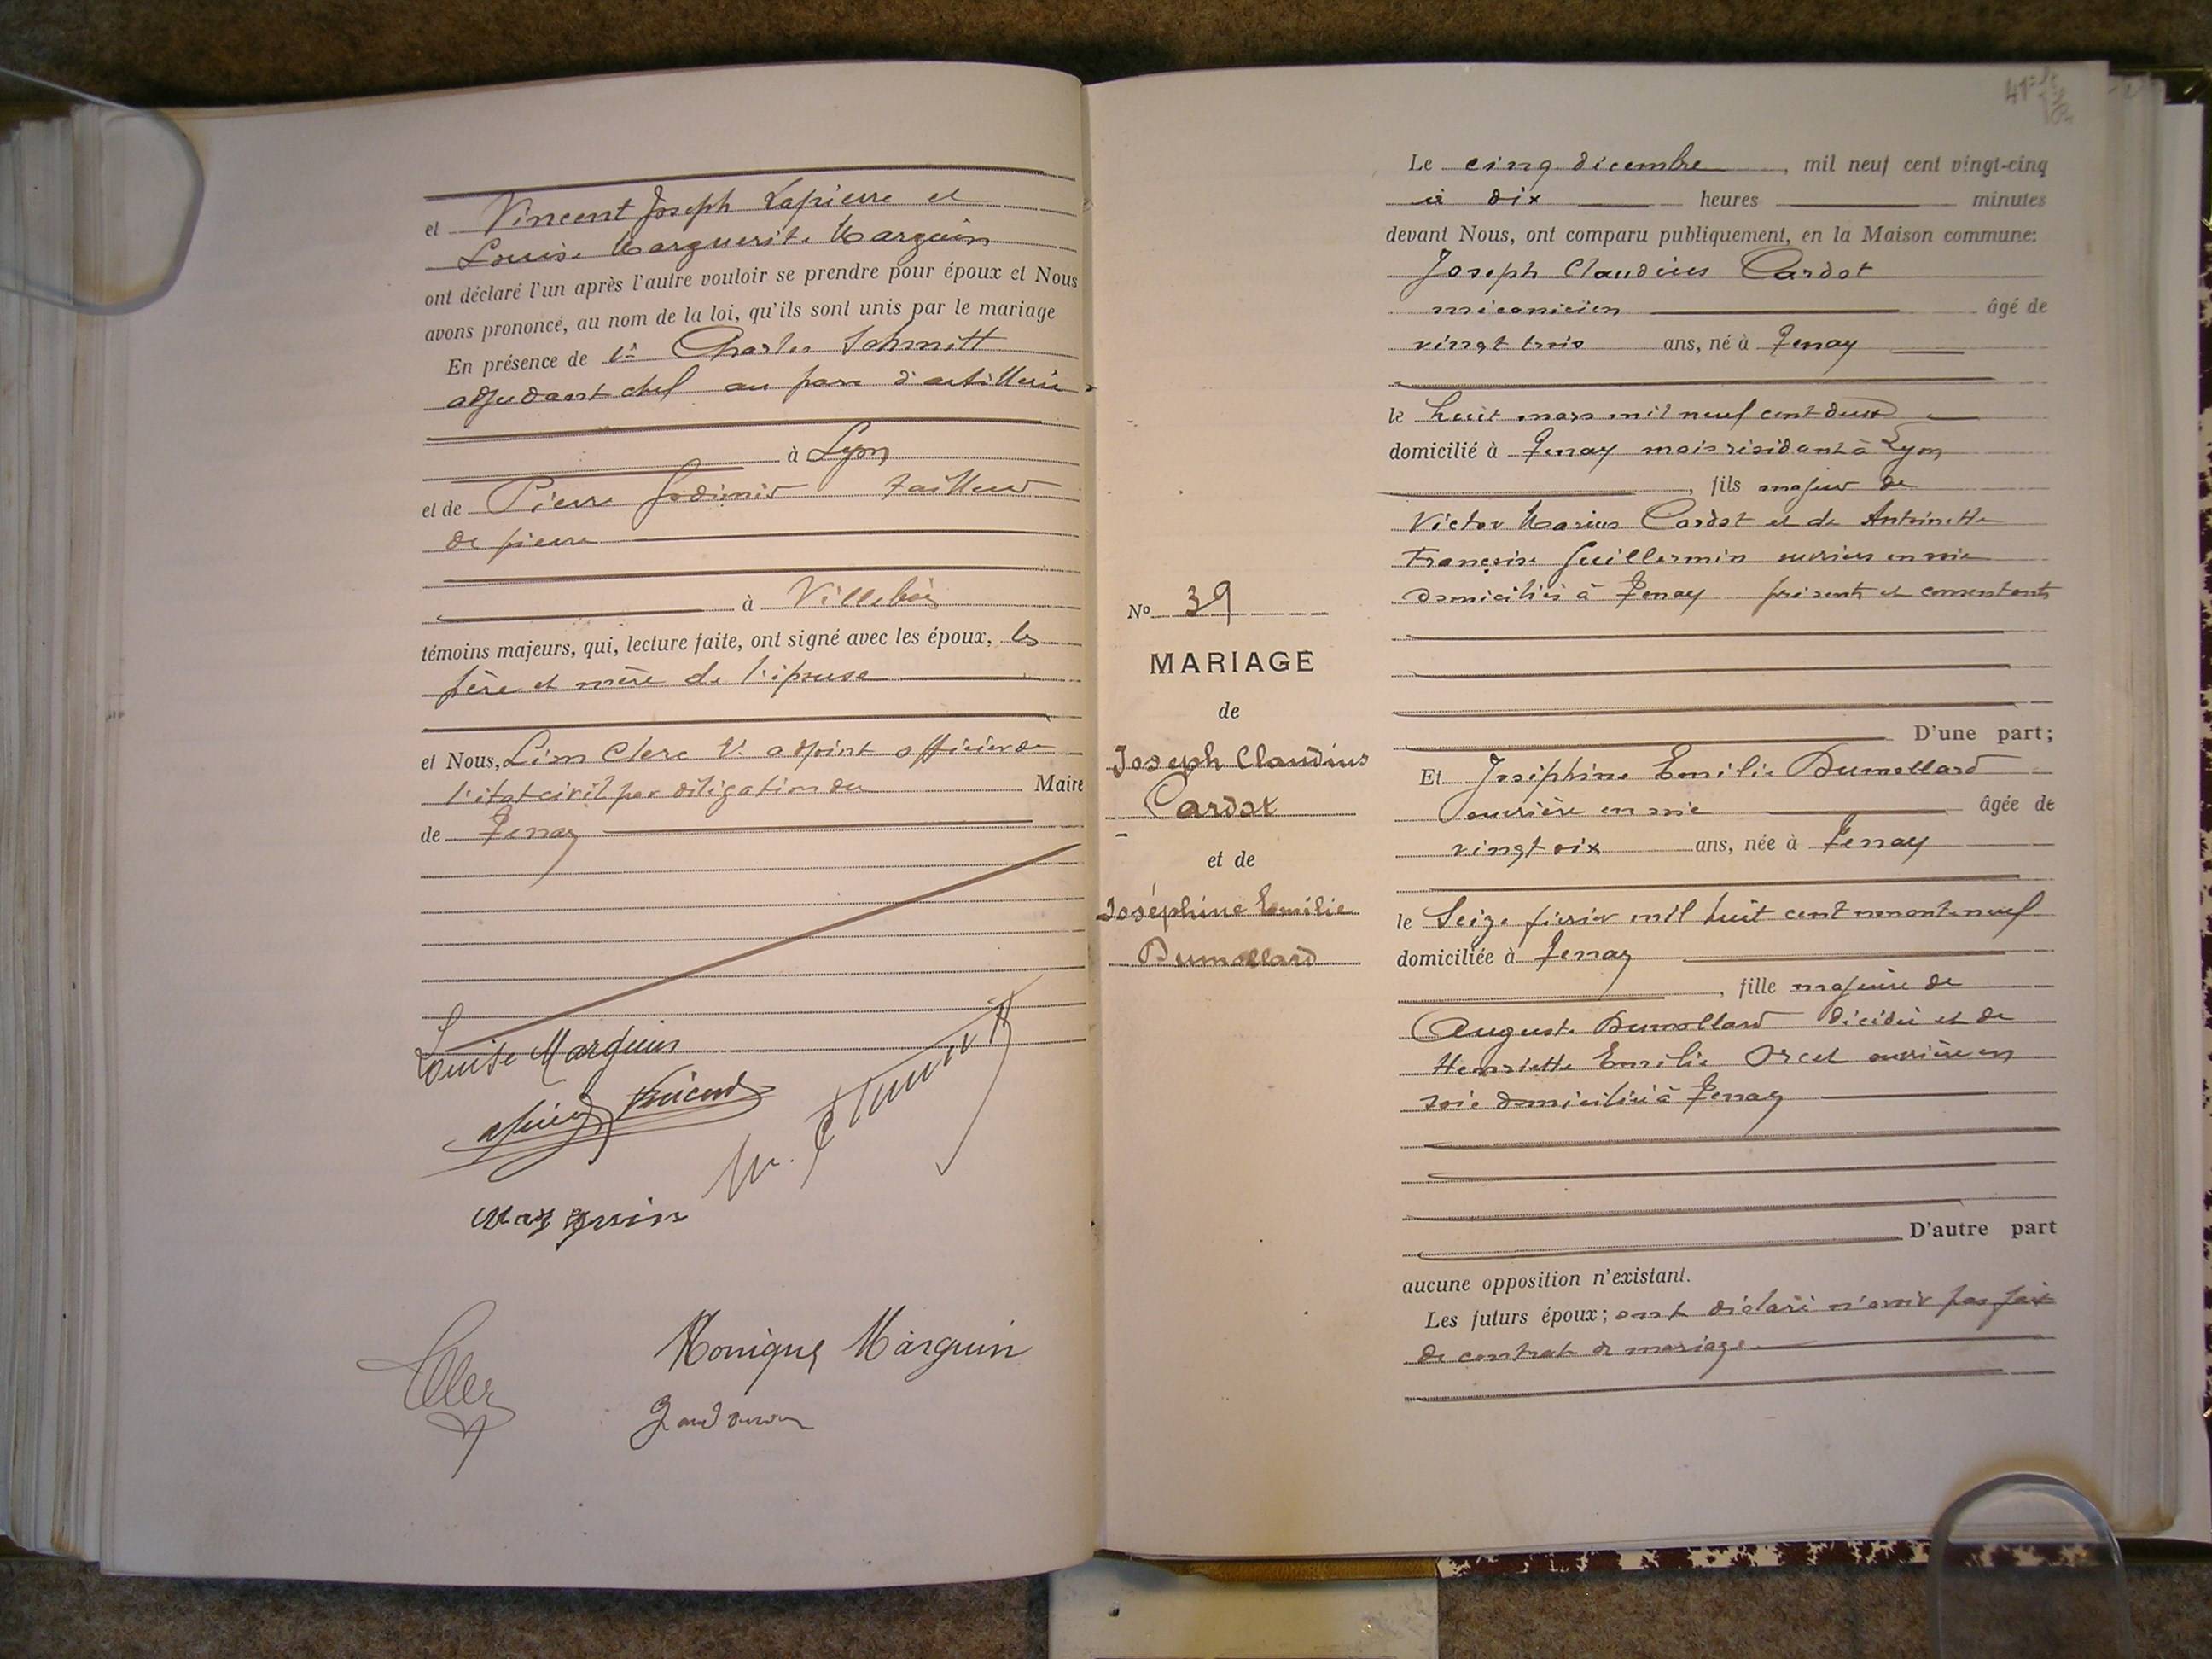 et Vincent Joseph Lapierre et
Louise Marguerite Marguin
ont déclaré l'un après l'autre vouloir se prendre pour époux et Nous
avons prononcé, au nom de la loi, qu'ils sont unis par le mariage
En présence de 1° Charles Schmitt
adjudant chef au parc d'artillerie
à Lyon
et de Pierre tailleur
de pierre
à Villebois
témoins majeurs, qui, lecture faite, ont signé avec les époux, les
père et mère de l'épouse
et Nous, Léon Clerc 1er adjoint officier de
l'état civil par déligation du Maire
de Tenay
Louise Marguin
Vincent
Marguin
Monique Marguin
41
Le cinq décembre, mil neuf cent vingt-cinq
à dix heures minutes
devant Nous, ont comparu publiquement, en la Maison commune:
Joseph Claudius Cardot
mécanicien âgé de
vingt trois ans, né à Tenay
le huit mars mil neuf cent deux
domicilié à Tenay mais résidant à Lyon
, fils majeur de
Victor Marius Cardot et de Antoinette
Françoise Guillermin ouvriers en soie
domiciliés à Tenay présents et consentants
D'une part;
Et Joséphine Emilie Dumollard
ouvrière en soie âgée de
vingt six ans, née à Tenay
le Seize février mil huit cent nonante neuf
domiciliée à Tenay
, fille majeure de
Auguste Dumollard décédé et de
Henriette Emilie Orcet ouvrière en
soie domiciliée à Tenay
D'autre part
aucune opposition n'existant.
Les futurs époux; ont déclaré n'avoir pas fait
de contrat de mariage
N° 39
MARIAGE
de
Joseph Claudius
Cardot
et de
Joséphine Emilie
Dumollard